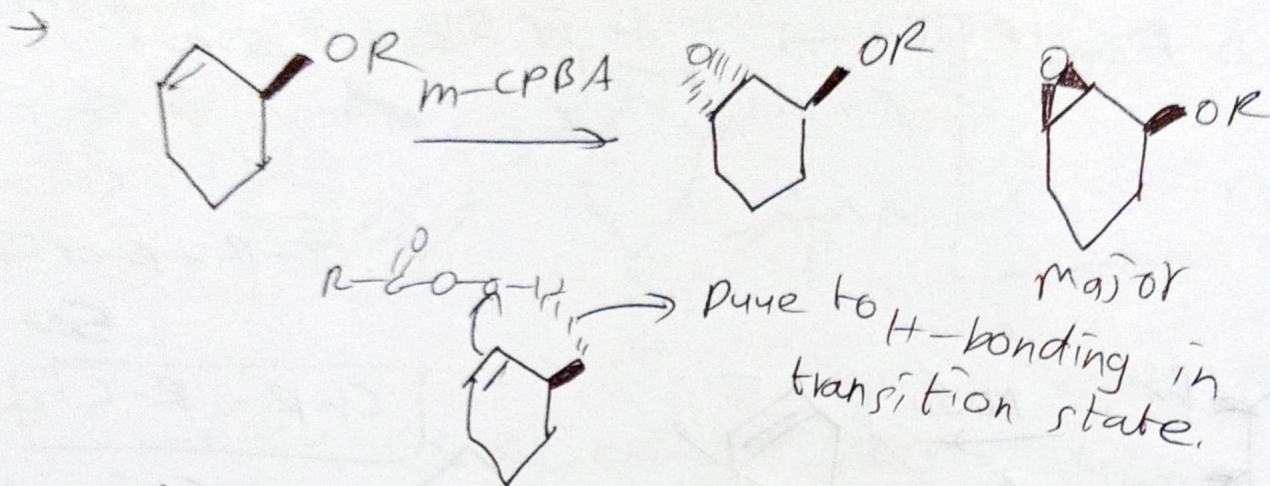 → OR m-CPBA O OR O OR
Major
R-C-O-O-H
O
Duue to H-bonding in
transition state.